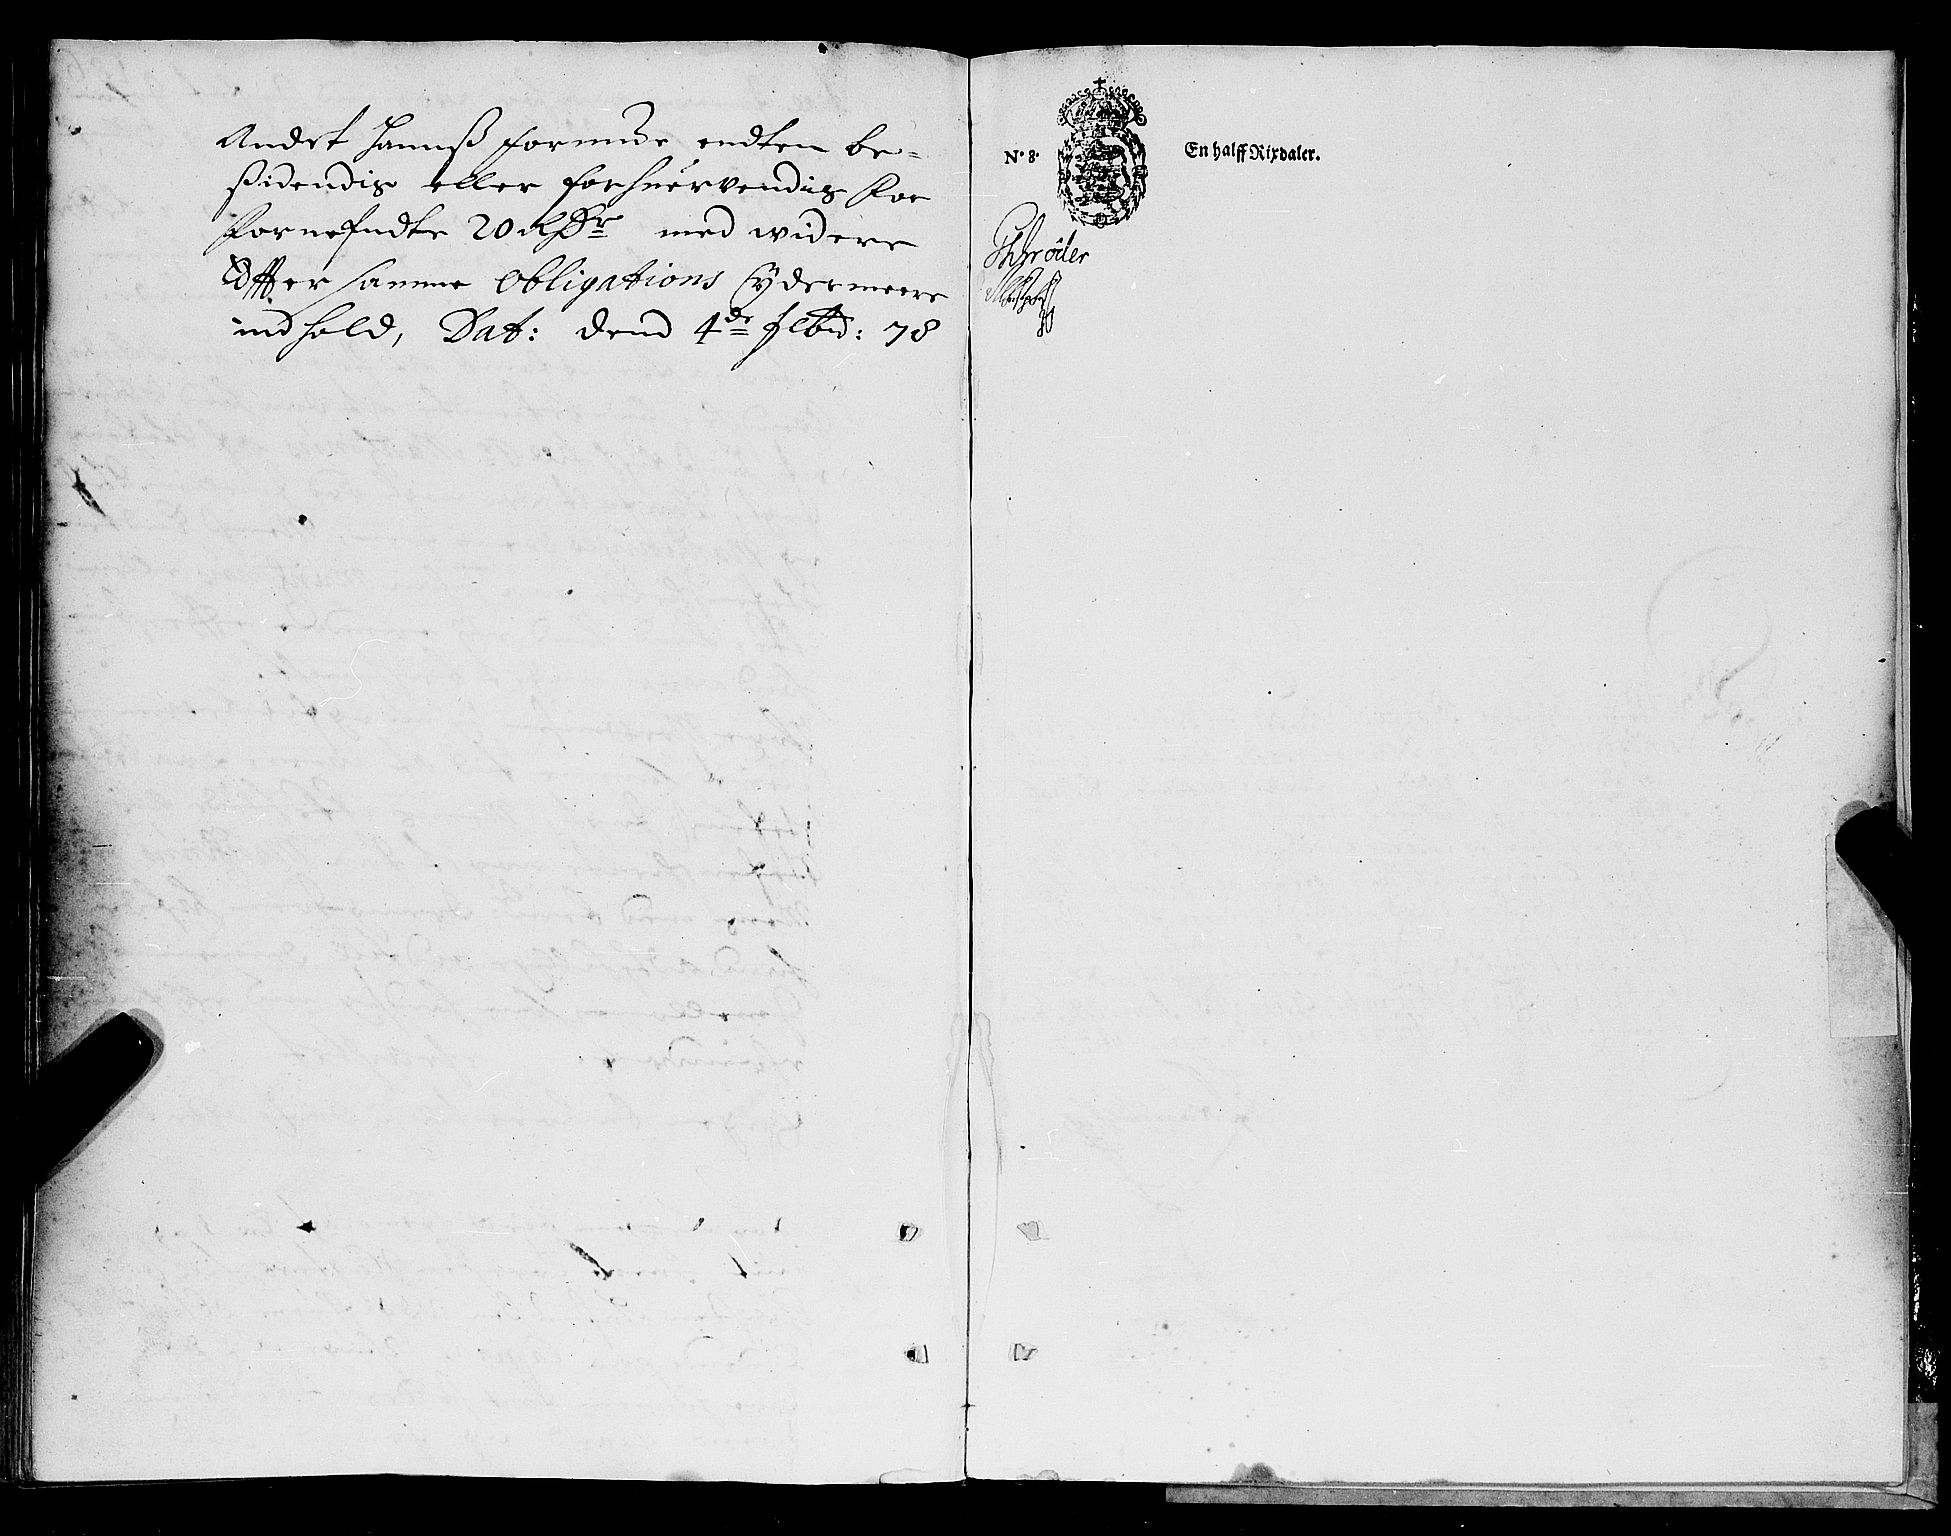 Andet hannß formue endten be-
sidendis eller forhuervendis for
fornefndte 20 Rdr med widere
Effter samme Obligations Ydermeere
indhold, Dat: dend 4de 78
No 8.
En halff Rixdaler.
Schröder